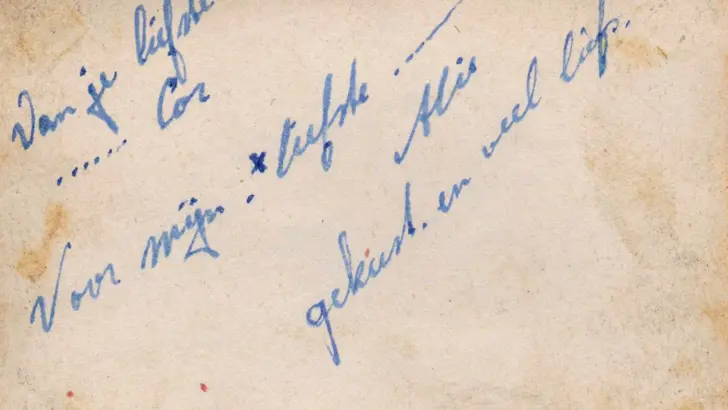 Van je liefste
...... Cor
Voor mijn. x liefste ......
Alie
gekust. en veel liefs.